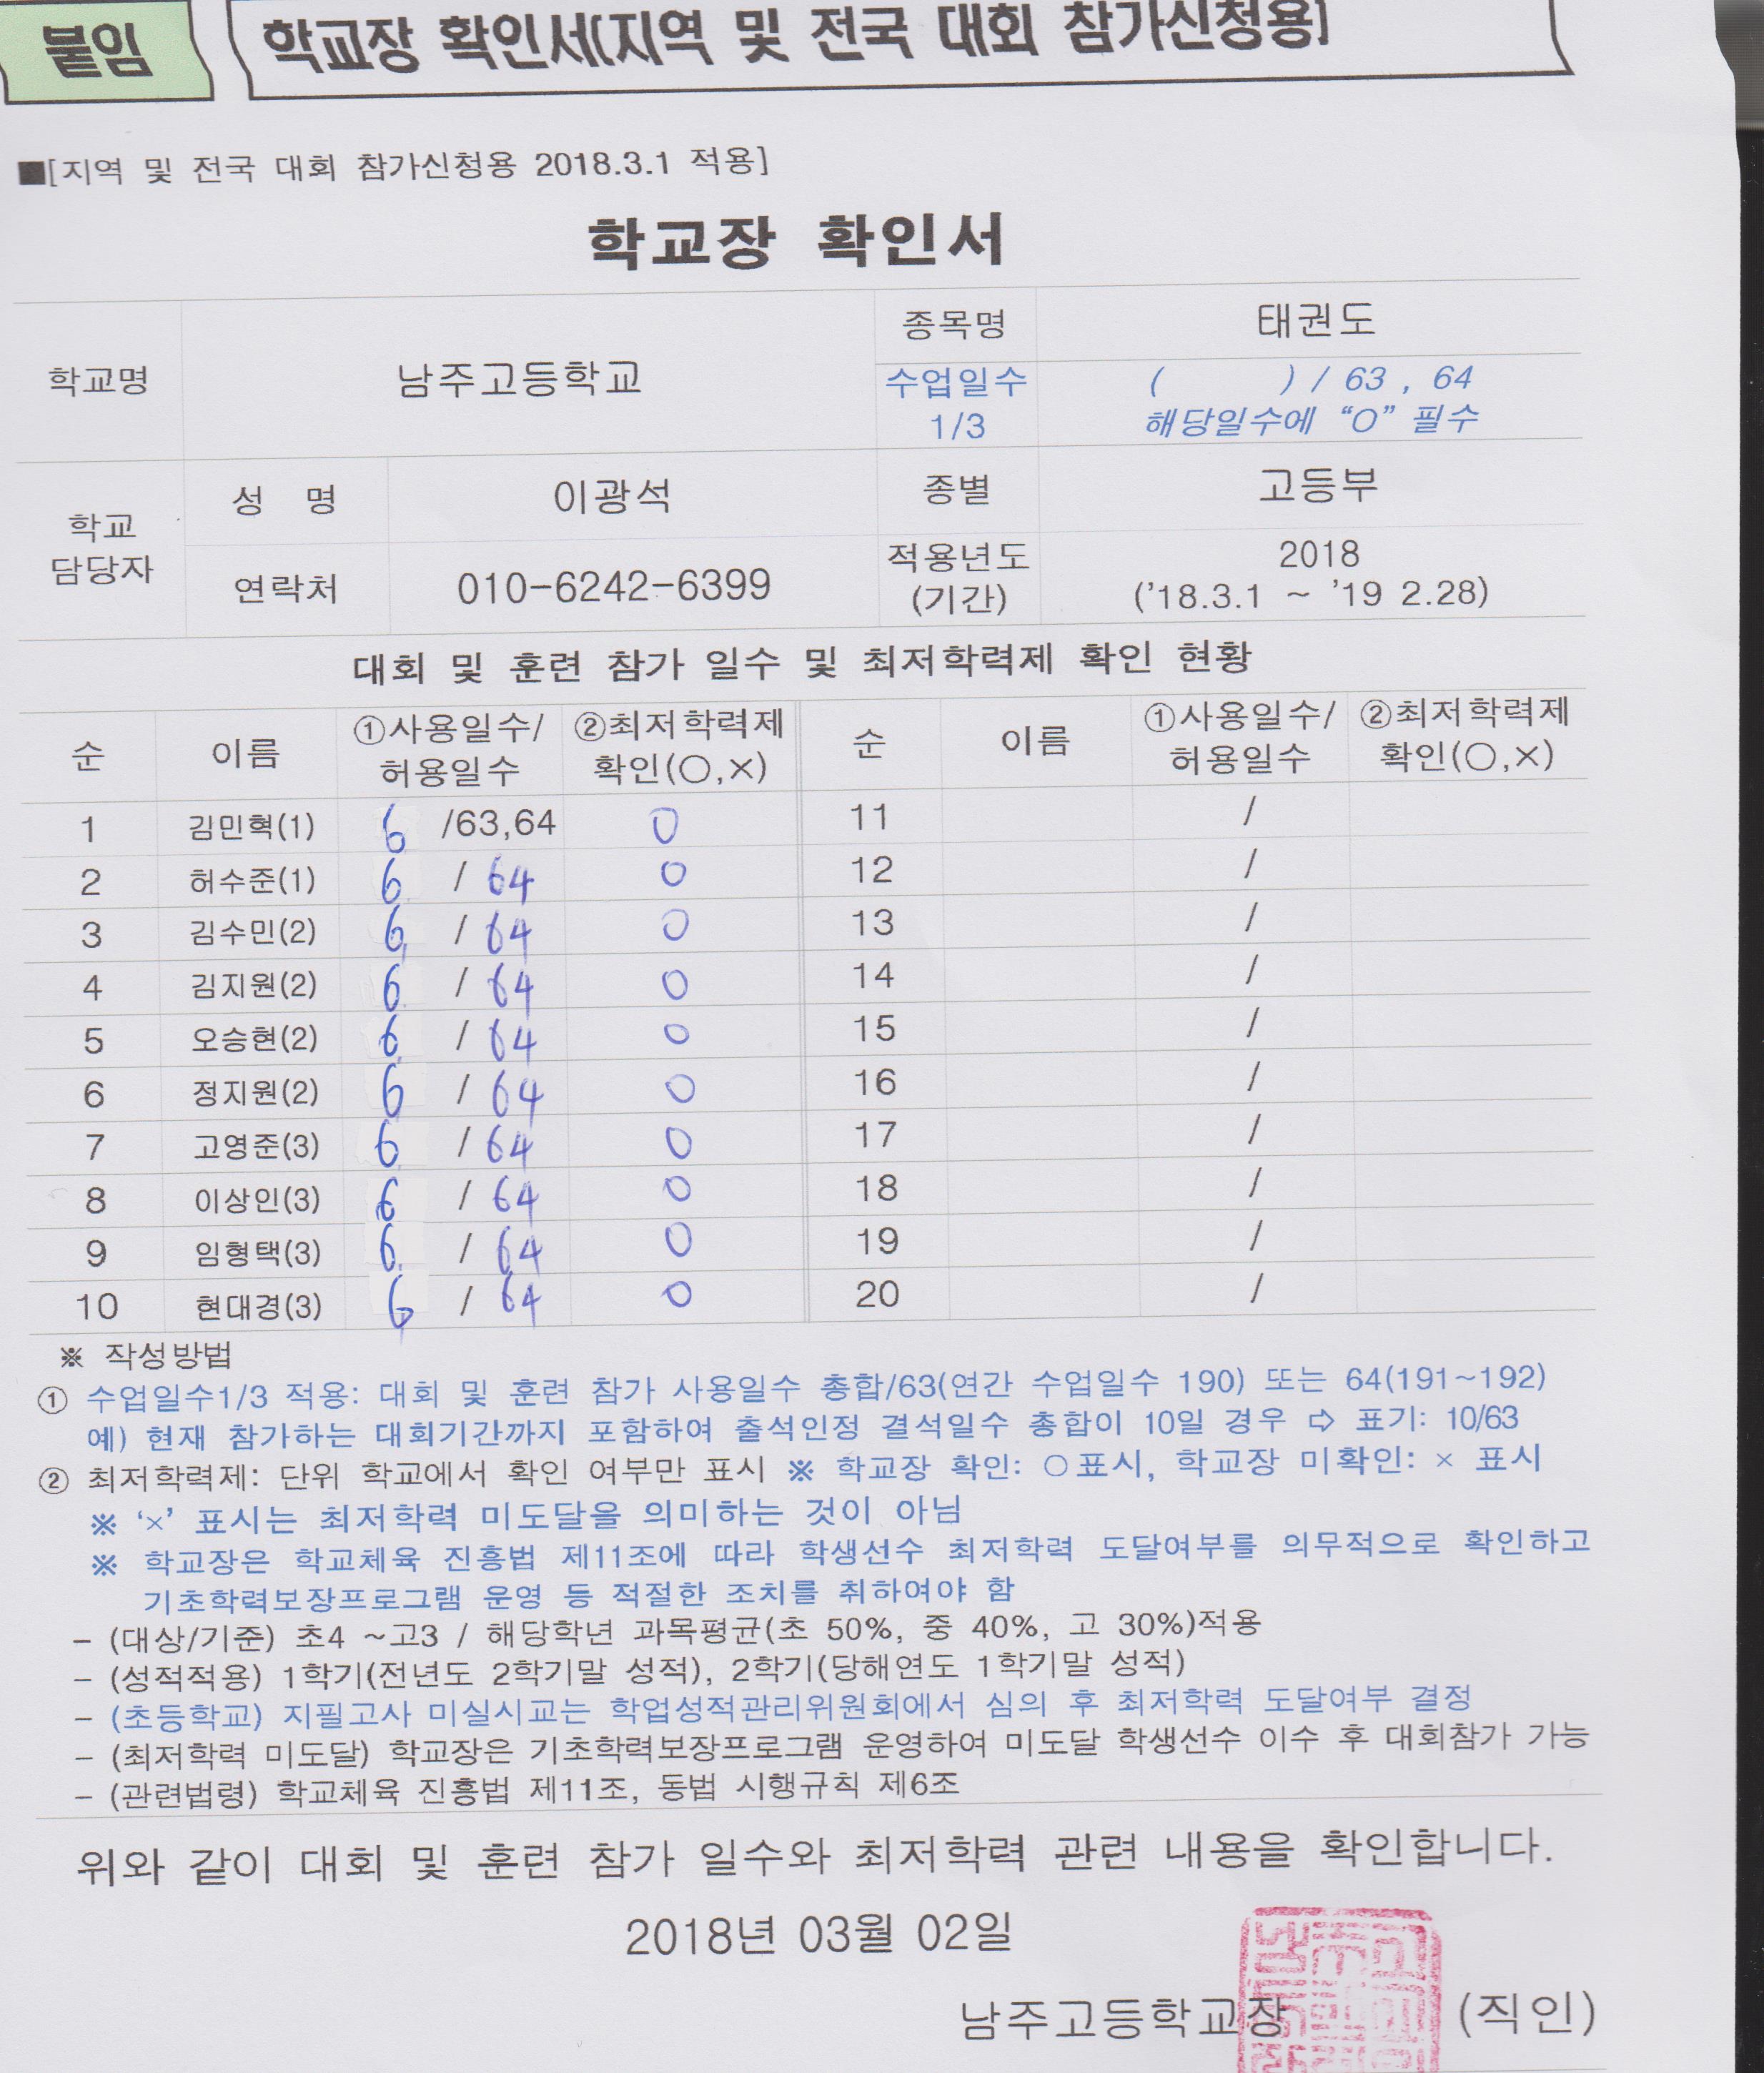 붙임
학교장 확인서(지역 및 전국 대회 참가신청용]
■[지역 및 전국 대회 참가신청용 2018.3.1 적용]
학교장 확인서
학교명 남주고등학교 종목명 태권도
수업일수 1/3 ( ) / 63 , 64
해당일수에 “O” 필수
학교 담당자 성 명 이광석 종별 고등부
연락처 010-6242-6399 적용년도 (기간) 2018
('18.3.1 ~ '19 2.28)
대회 및 훈련 참가 일수 및 최저학력제 확인 현황
순 이름 ①사용일수/허용일수 ②최저학력제 확인(○,×) 순 이름 ①사용일수/허용일수 ②최저학력제 확인(○,×)
1 김민혁(1) 6 /63,64 O 11 /
2 허수준(1) 6 / 64 O 12 /
3 김수민(2) 6 / 64 O 13 /
4 김지원(2) 6 / 64 O 14 /
5 오승현(2) 6 / 64 O 15 /
6 정지원(2) 6 / 64 O 16 /
7 고영준(3) 6 / 64 O 17 /
8 이상인(3) 6 / 64 O 18 /
9 임형택(3) 6 / 64 O 19 /
10 현대경(3) 6 / 64 O 20 /
※ 작성방법
① 수업일수1/3 적용: 대회 및 훈련 참가 사용일수 총합/63(연간 수업일수 190) 또는 64(191~192)
예) 현재 참가하는 대회기간까지 포함하여 출석인정 결석일수 총합이 10일 경우 ⇨ 표기: 10/63
② 최저학력제: 단위 학교에서 확인 여부만 표시 ※ 학교장 확인: ○표시, 학교장 미확인: × 표시
※ ‘×’ 표시는 최저학력 미도달을 의미하는 것이 아님
※ 학교장은 학교체육 진흥법 제11조에 따라 학생선수 최저학력 도달여부를 의무적으로 확인하고
기초학력보장프로그램 운영 등 적절한 조치를 취하여야 함
- (대상/기준) 초4 ~고3 / 해당학년 과목평균(초 50%, 중 40%, 고 30%)적용
- (성적적용) 1학기(전년도 2학기말 성적), 2학기(당해연도 1학기말 성적)
- (초등학교) 지필고사 미실시교는 학업성적관리위원회에서 심의 후 최저학력 도달여부 결정
- (최저학력 미도달) 학교장은 기초학력보장프로그램 운영하여 미도달 학생선수 이수 후 대회참가 가능
- (관련법령) 학교체육 진흥법 제11조, 동법 시행규칙 제6조
위와 같이 대회 및 훈련 참가 일수와 최저학력 관련 내용을 확인합니다.
2018년 03월 02일
남주고등학교장 (직인)